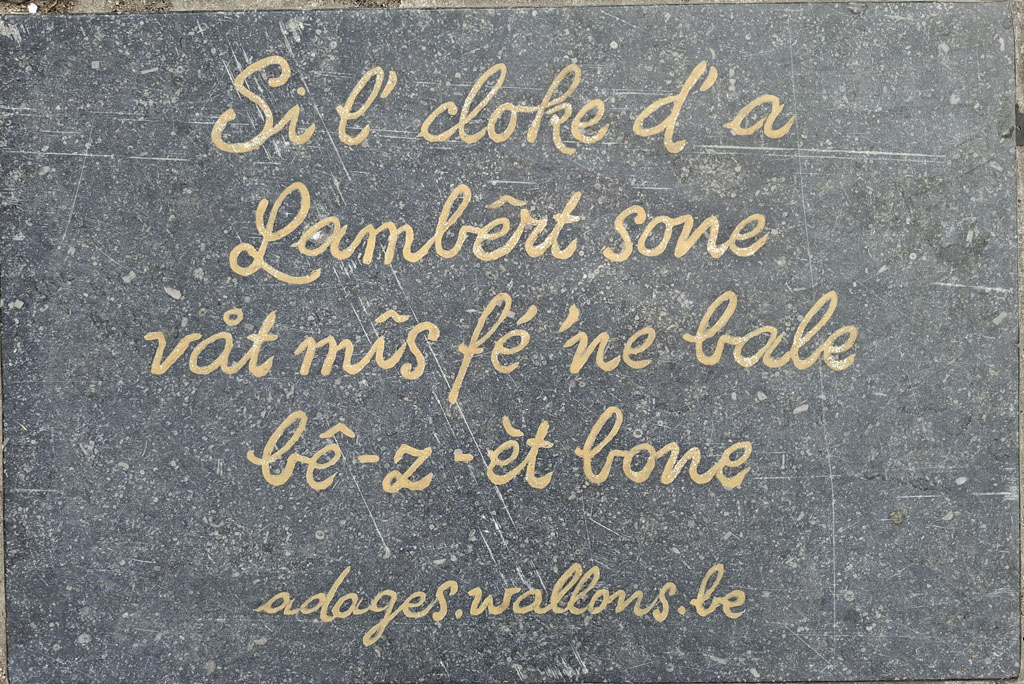 Si l' cloke d' a
Lambêrt sone
våt mîs fé 'ne bale
bê-z-èt bone
adages.wallons.be